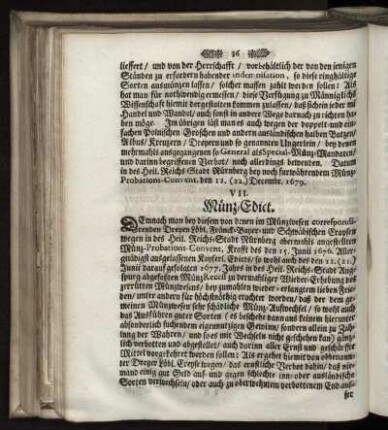 26
lieffert / und von der Herrschafft / vorbehältlich der von den jenigen
Ständen zu erfordern habender indemnisation, so diese ringhältige
Sorten ausmünzen lassen / solcher massen zahlt werden sollen: Als
hat man für nothwendig ermessen / diese Verfügung zu Männigliches
Wissenschafft hiemit dergestalten kommen zulassen / daß sich ein jeder im
Handel und Wandel / auch sonst in andere Wege darnach zu richten ha-
ben möge. Im übrigen läst man es auch wegen der doppelt- und ein-
fachen Polnischen Groschen und andern ausländischen halben Batzen/
Albus / Kreuzern / Dreyern und so genannten Ungerlein / bey denen
mehrmahls ausgegangenen so General als Special-Münz-Mandaten/
und darinn begriffenen Verbot / noch allerdings bewenden. Datum
in des Heil. Reichs-Stadt Nürnberg bey noch fürwährendem Münz-
Probations-Convent, den 12. (22.) Decembr. 1679.
VII.
Münz-Edict.
Demnach man bey diesen von denen im Münzwesen correspondi-
renden Dreyen Löbl. Fränck-Bayer- und Schwäbischen Craysen
wegen in des Heil. Reichs-Stadt Nürnberg abermahls angestellten
Münz-Probations-Convent, Krafft des den 15. Junii 1676. Aller-
gnädigst ausgelassenen Kayserl. Edicts / so wohl auch des den 11. (21.)
Junii darauf gefolgten 1677. Jahrs in des Heil. Reichs-Stadt Aug-
spurg abgefasten Münz Recess zu dermahliger Wieder-Erhebung des
zerrütten Münzwesens / bey zumahlen wieder-erlangtem lieben Frie-
den / unter andern für höchstnöthig erachtet worden / daß der dem ge-
meinen Münzwesen sehr schädliche Münz-Aufwechsel / so wohl auch
das Ausführen guter Sorten (es beschehe dann aus keinem hierunter
absonderlich suchendem eigennutzigen Gewinn / sondern allein zu Zah-
lung der Wahren / und so es mit Wechseln nicht geschehen kan) gänz-
lich verbotten und abgestellet / auch darinn aller Ernst und geschärffte
Mittel vorgekehret werden sollen: Als ergehet hiemit von obbenann-
ter Dreyer Löbl. Creyse wegen / das ernstliche Verbot dahin / daß nie-
mand einig gut Geld aus- und gegen schlechte inn- oder ausländische
Sorten verwechseln / oder auch zu oberwehntem verbottenem End ausser